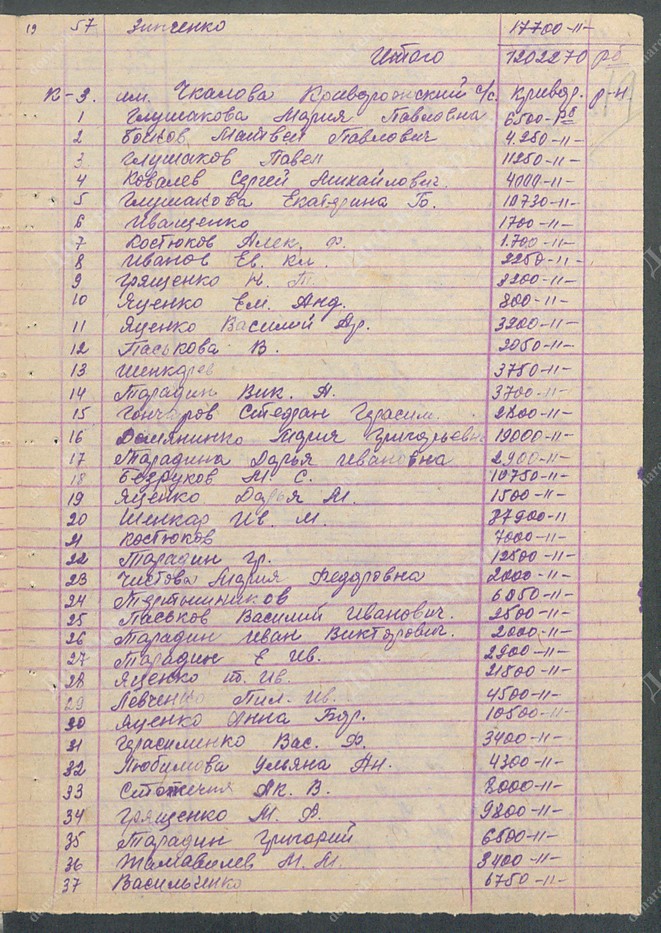 19 57 Зинченко 17700-11-
Итого 1202270 рб
К-з. им. Чкалова Криворожский с/с. Кривор. р-н
1 Глушакова Мария Павловна 6500-рб
2 Боисов Матвей Павлович 4.250-11-
3 Глушаков Павел 11250-11-
4 Ковалев Сергей Михайлович. 4000-11-
5 Глушакова Екатерина Б. 10730-11-
6 Иващенко 1700-11-
7 Костюков Алек. Ф. 1.700-11-
8 Иванов Ев. Кл. 2250-11-
9 Грященко Н. Т. 2200-11-
10 Яценко Ем. Анд. 800-11-
11 Яценко Василий Др. 3200-11-
12 Паськова В. 2050-11-
13 3750-11-
14 Тарадин Вик. А. 3700-11-
15 Гончаров Стефан Герасим. 2800-11-
16 Мария Григорьевна 19000-11-
17 Тарадина Дарья Ивановна 2900-11-
18 Безруков М. С. 10750-11-
19 Яценко Дарья М. 1500-11-
20 Шенкар Ив. М. 37900-11
21 Костюков 7000-11-
22 Тарадин Гр. 12500-11-
23 Чистова Мария Федоровна 2000-11-
24 Тертышников 6050-11-
25 Паськов Василий Иванович. 2500-11-
26 Тарадин Иван Викторович. 2000-11-
27 Тарадин Е Ив. 2900-11-
28 Яценко Т. Ив. 21800-11-
29 Левченко Пил. Ив. 4500-11-
30 Яценко Анна 10500-11-
31 Герасименко Вас. Ф. 3400-11-
32 Любимова Ульяна Ан. 4300-11-
33 Ак. В. 8000-11-
34 Грященко М. Ф. 9800-11-
35 Тарадин Григорий 6500-11-
36 М. М. 3400-11-
37 Васильченко 6750-11-